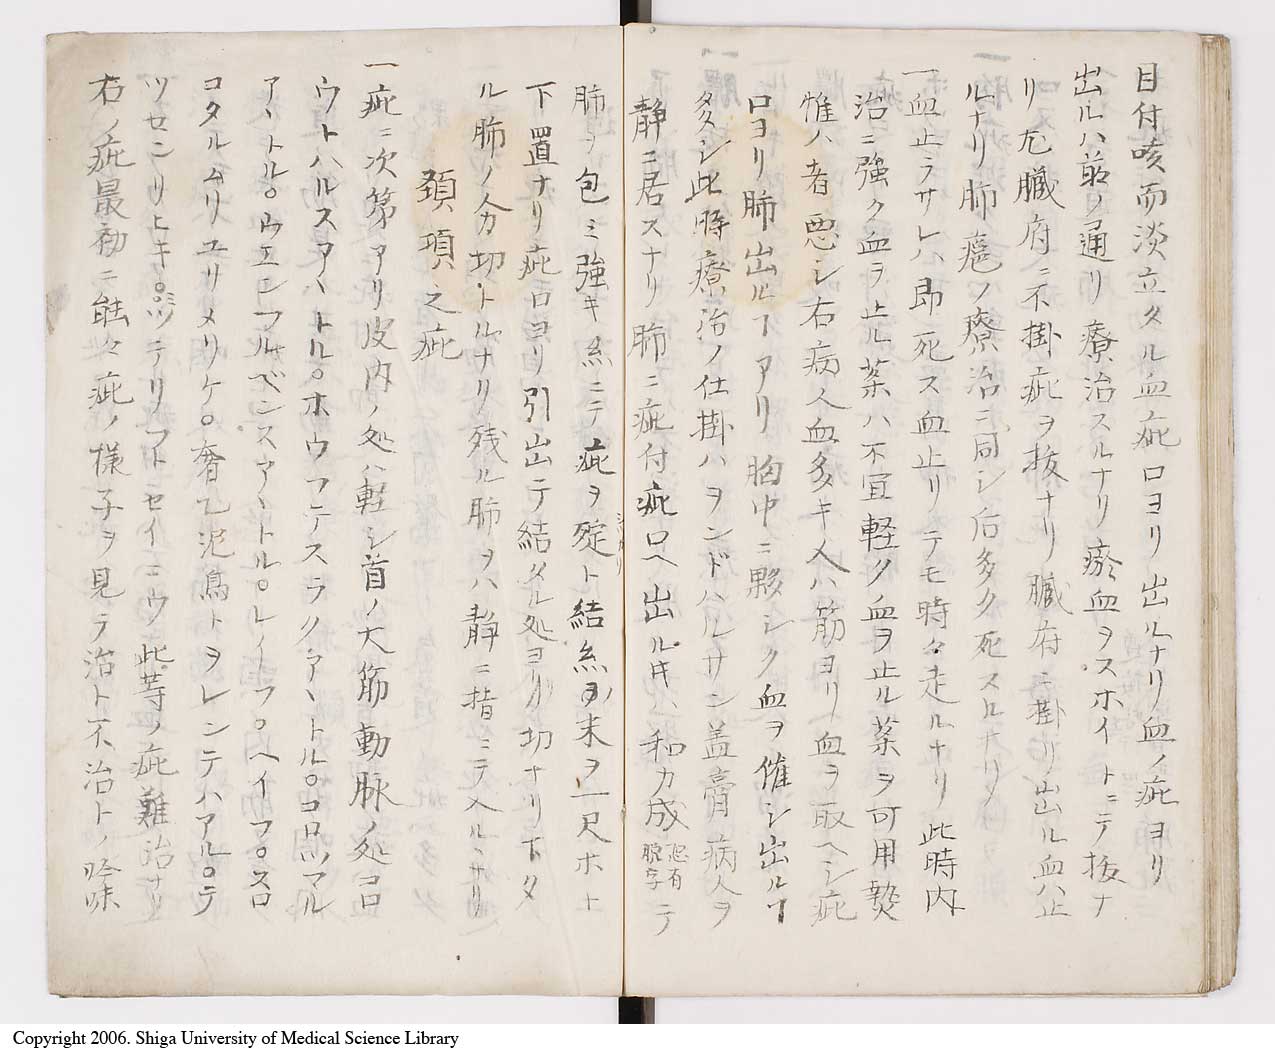 目付咳而淡立タル血疵口ヨリ出ルナリ血ノ疵ヨリ
出ルハ前ノ通リ療治スルナリ瘀血ヲスホイトニテ抜ナ
リ尤臓府ニ不掛疵ヲ抜ナリ臓府ニ掛リ出ル血ハ止
ルナリ肺瘡ノ療治ニ同シ后多ク死スルナリ
一血止ラサレハ即死ス血止リテモ時々走ルナリ此時内
治ニ強ク血ヲ止ル薬ハ不宜軽ク血ヲ止ル薬ヲ可用熱
惟ハ者悪シ右病人血多キ人ハ筋ヨリ血ヲ取ヘシ疵
口ヨリ肺出ルヿアリ胸中ニ夥シク血ヲ催シ出ルヿ
多シ此時療治ノ仕掛ハヲンドハルサン蓋膏病人ヲ
静ニ居スナリ肺ニ疵付疵口ヘ出ル時ハ和カ成 恐有脱字 テ
肺ヲ包ミ強キ糸ニテ疵ヲ碇ト結糸ノ末ヲ一尺ホト
シツカリ
下置ナリ疵口ヨリ引出テ結タル処ヨリ切ナリ下タ
ル肺ノ分切トルナリ残ル肺ヲハ静ニ指ニテ入ルヽナリ
頚項之疵
一疵ニ次第アリ皮内ノ処ハ軽シ首ノ大筋動脉ノ処コロ
ウトハルスアヽトル○ホウフテスラクアヽトル○コロハマル
アヽトル○ウエンフルベンスアヽトル○レイフ○ヘイフ○スロ
コタルムリユリメリケ○奢乙泥鳥トヲレンテハアル○テ
ツセンリヒキ○ミツテリフトセイニウ此等ノ疵難治ナリ
右ノ疵最初ニ能々疵ノ様子ヲ見ラ治ト不治トノ吟味
Copyright 2006. Shiga University of Medical Science Library